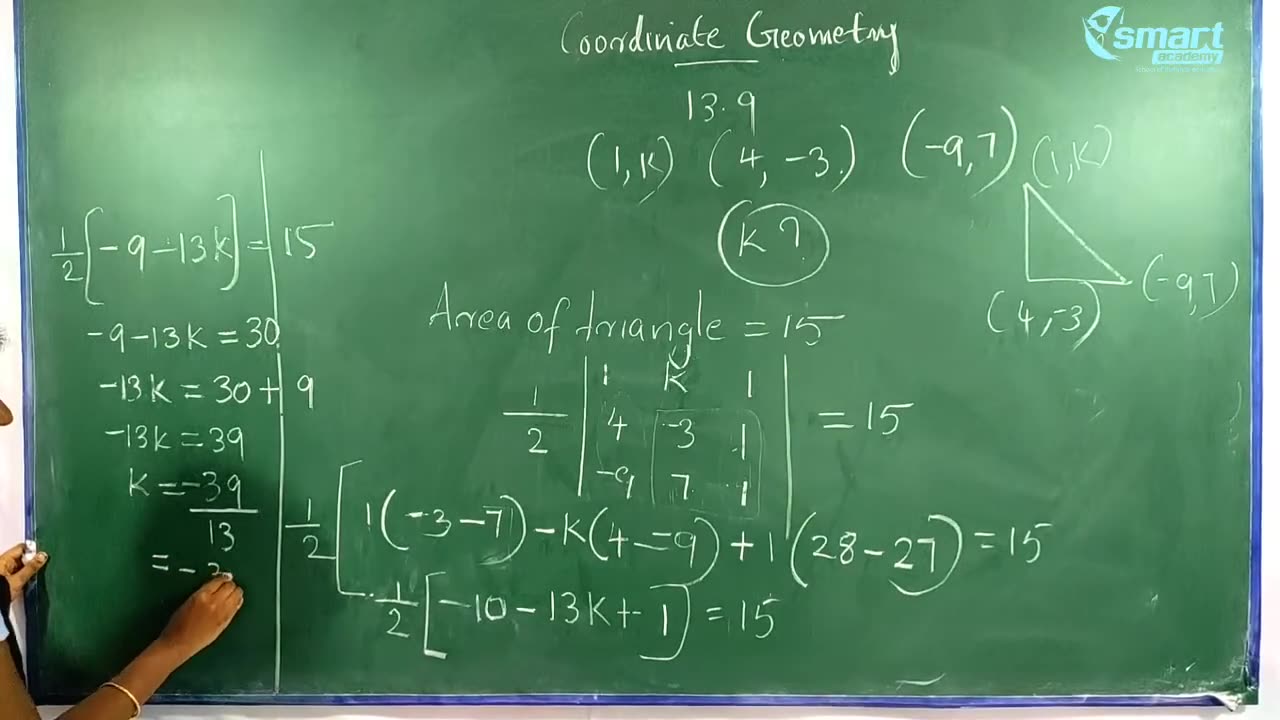 smart
academy
Coordinate Geometry
13.9
(1, K) (4, -3.) (-9, 7)
K ?
(1, K)
(4, -3)
(-9, 7)
Area of triangle = 15
1/2 | 1 K 1 |
| 4 -3 1 | = 15
| -9 7 1 |
1/2 [ 1(-3-7) - K(4--9) + 1(28-27) = 15
1/2 [-10 - 13K + 1] = 15
1/2 [-9-13K] = 15
-9-13K = 30
-13K = 30 + 9
-13K = 39
K = -39/13
= -3